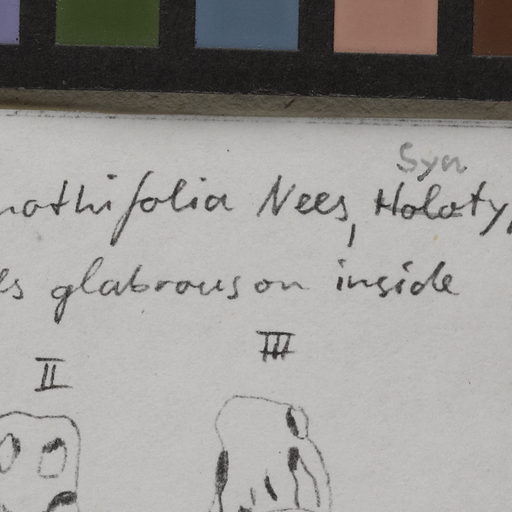 Syn
nathifolia Nees, Holoty
es glabrous on inside
III
II